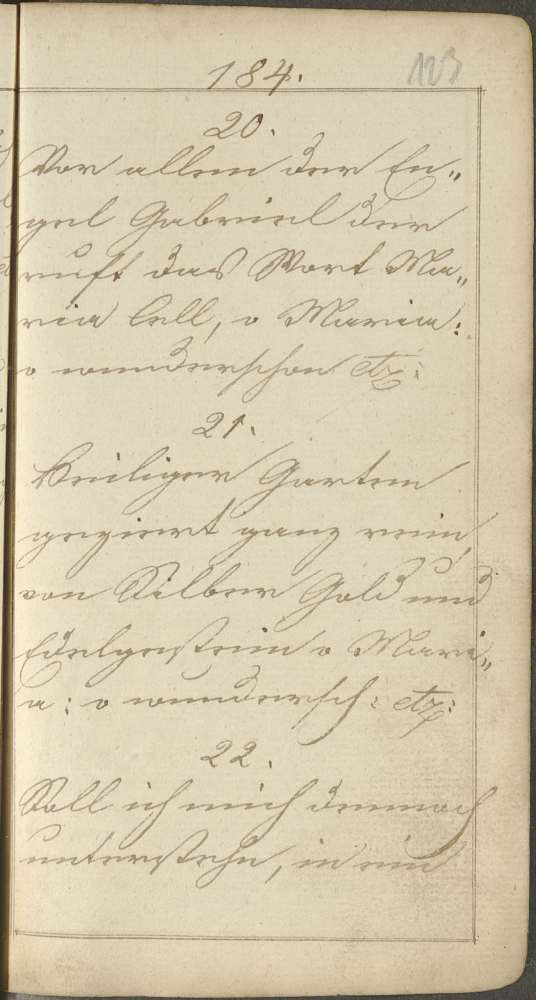 184.
123
20.
Vor allem der En„
gel Gabriel der
ruft das Wort Ma„
ria Cell, o Maria:
o wunderschon etz:
21.
Heiliger Garten
geziert ganz rein,
von Silber Gold und
Edelgestein o Mari„
a: o wundersch: etz:
22.
Soll ich mich dennoch
unterstehn, in ein